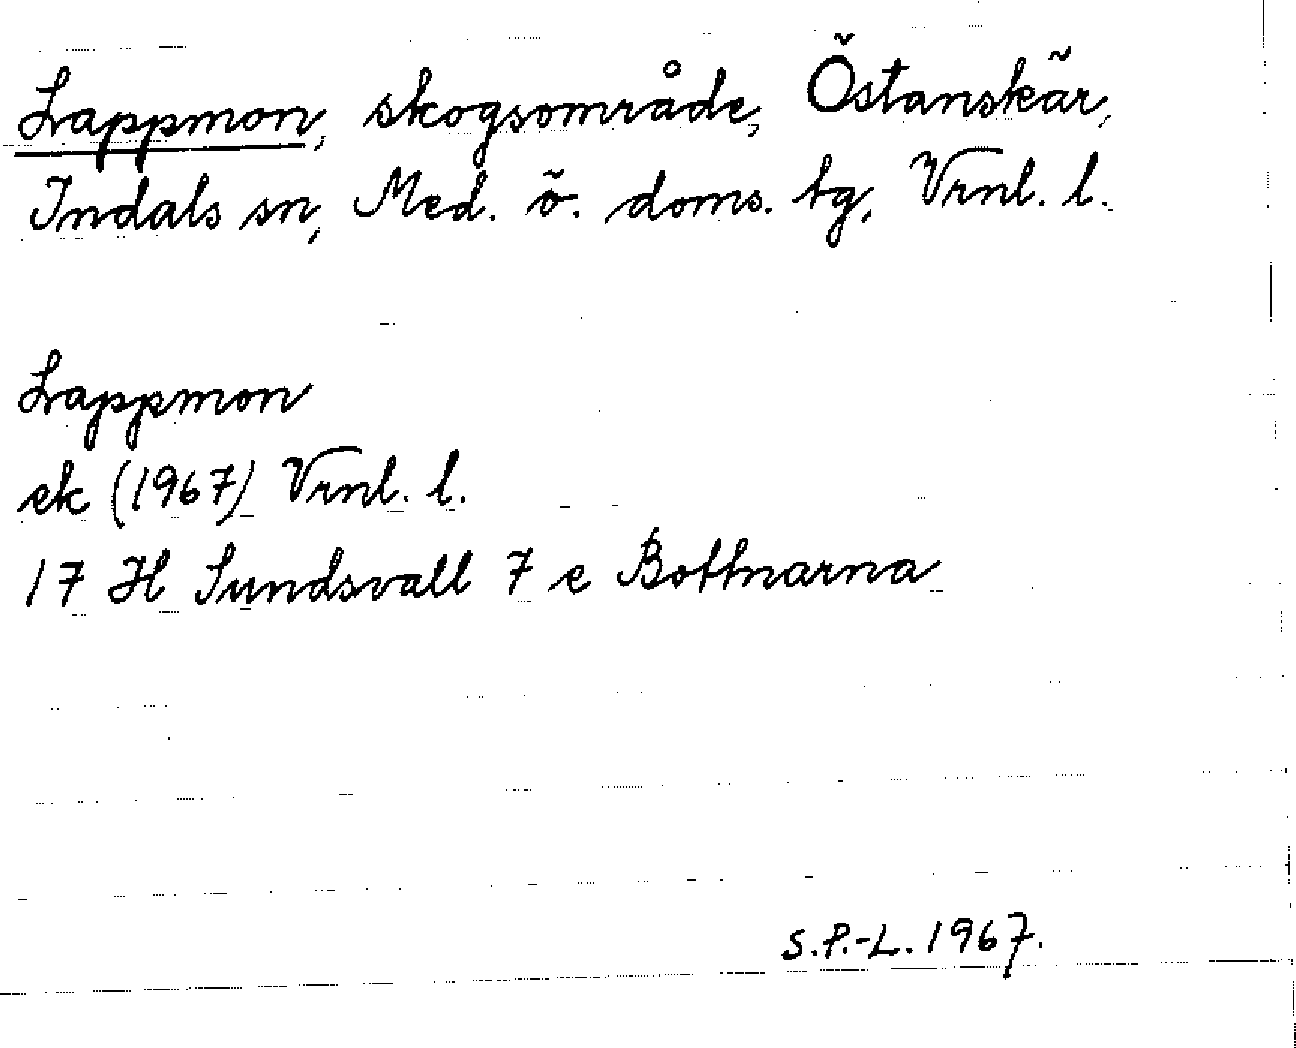 Lappmon, skogsområde, Östanskär,
Indals sn, Med. ö. doms. tg, Vrnl. l.
Lappmon
ek (1967) Vrnl. l.
17 H Sundsvall 7 e Bottnarna
S.P.-L. 1967.